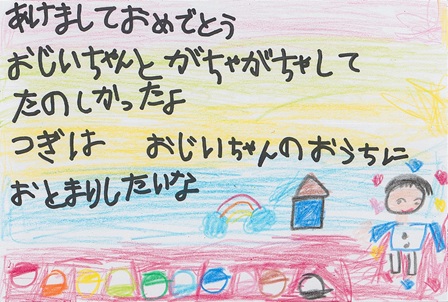 あけましておめでとう
おじいちゃんと がちゃがちゃして
たのしかったよ
つぎは おじいちゃんのおうちに
おとまりしたいな